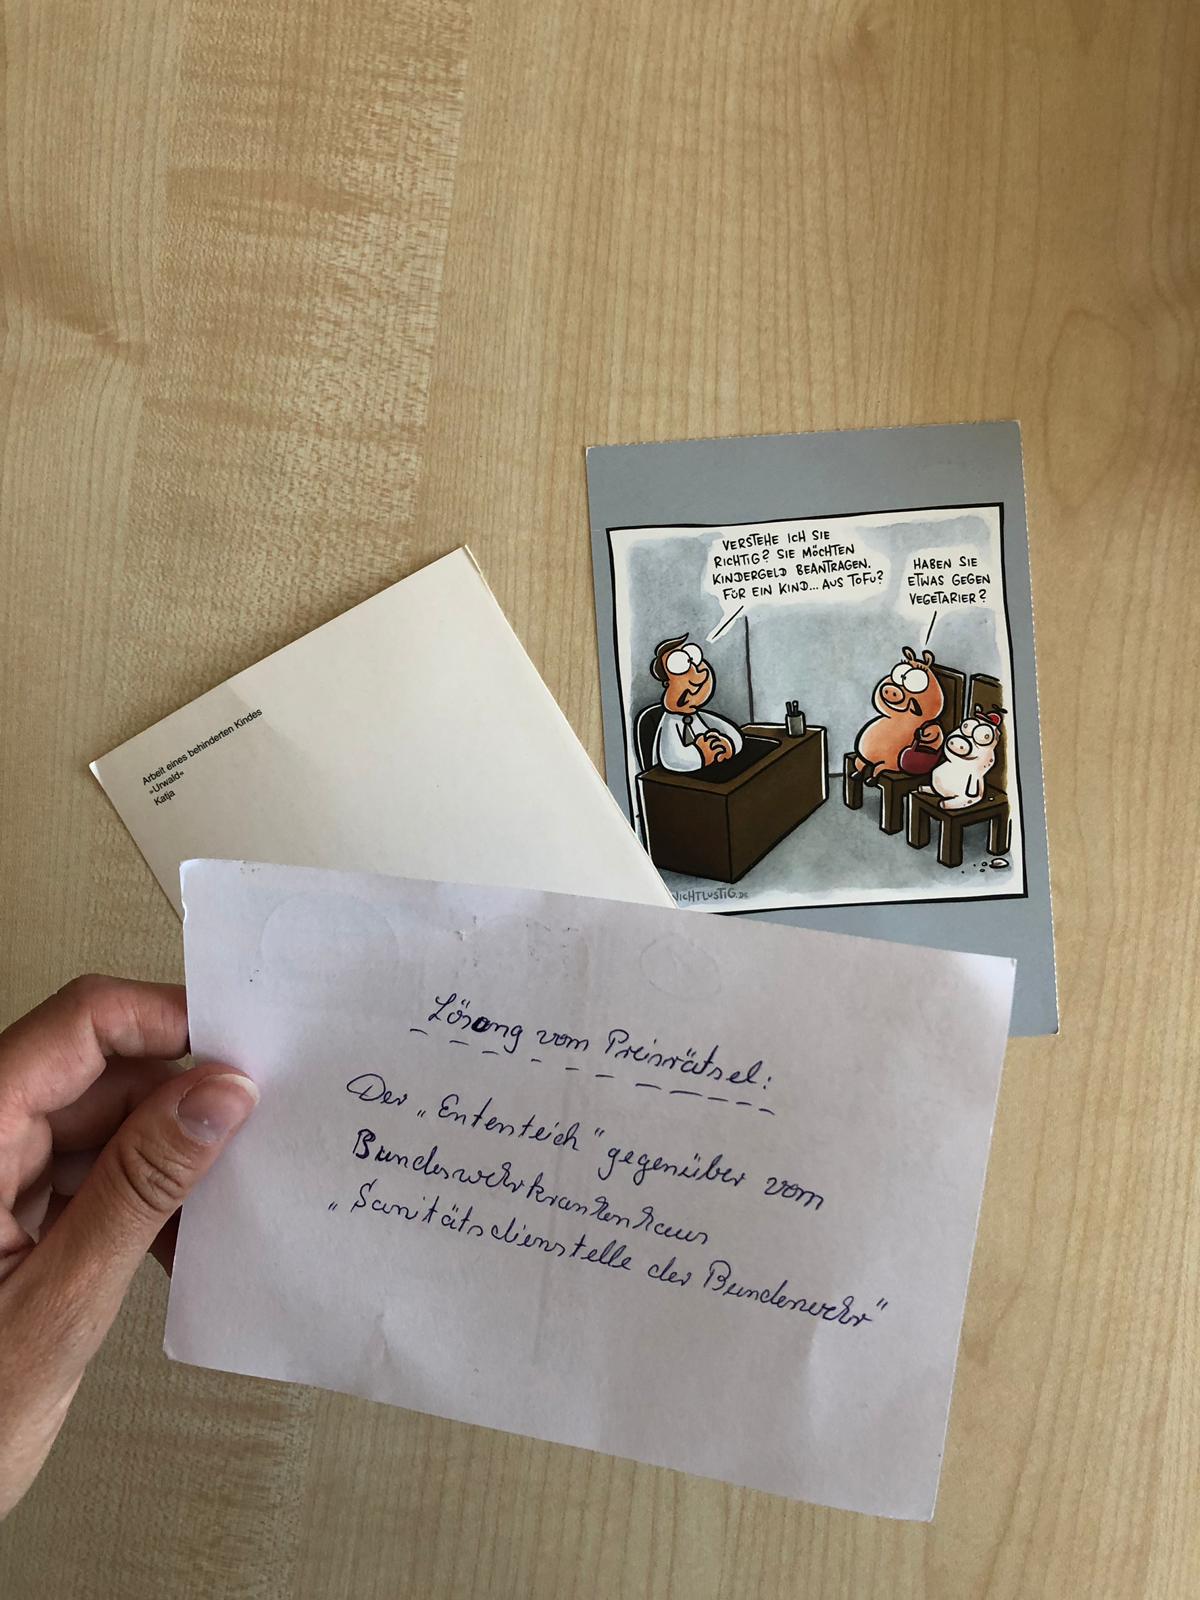 VERSTEHE ICH SIE
RICHTIG? SIE MÖCHTEN
KINDERGELD BEANTRAGEN.
FÜR EIN KIND... AUS TOFU?
HABEN SIE
ETWAS GEGEN
VEGETARIER?
NICHTLUSTIG.DE
Arbeit eines behinderten Kindes
»Urwald«
Katja
Lösung vom Preisrätsel:
Der „Ententeich" gegenüber vom
Bundeswehrkrankenhaus
„Sanitätsdienstelle der Bundeswehr"